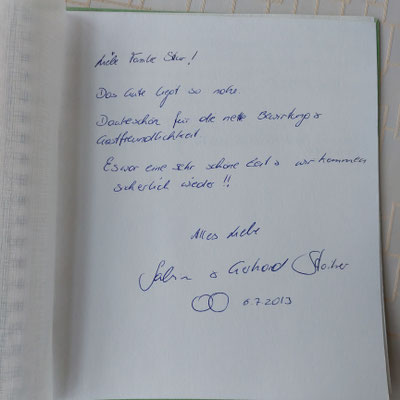 Liebe Familie
Das Gute liegt so nahe.
Dankeschön für die nette Bewirtung &
Gastfreundlichkeit.
Es war eine sehr schöne Zeit & wir kommen
sicherlich wieder!!
Alles Liebe
& Gerhard
6.7.2013